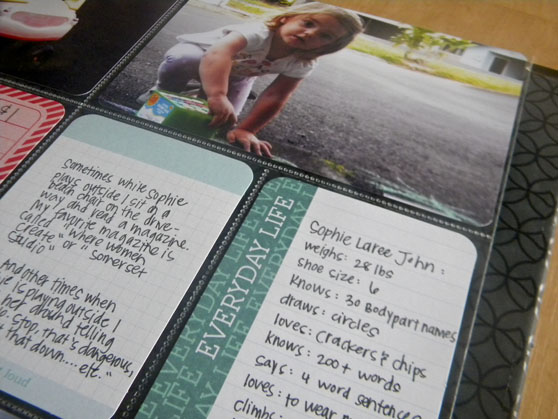 Sometimes while Sophie
plays outside I sit in a
beach chair on the drive-
way and read a magazine.
My favorite magazine is
called "Where Women
Create" or "Somerset
Studio"
And other times when
is playing outside I
her around telling
stop, that's dangerous,
that down....etc."
loud
EVERYDAY LIFE
EVERYDAY LIFE
EVERYDAY LIFE
Sophie Laree John:
weighs: 28 lbs
shoe size: 6
knows: 30 Bodypart names
draws: circles
loves: crackers & chips
knows: 200+ words
says: 4 word sentences
loves: to wear
climbs